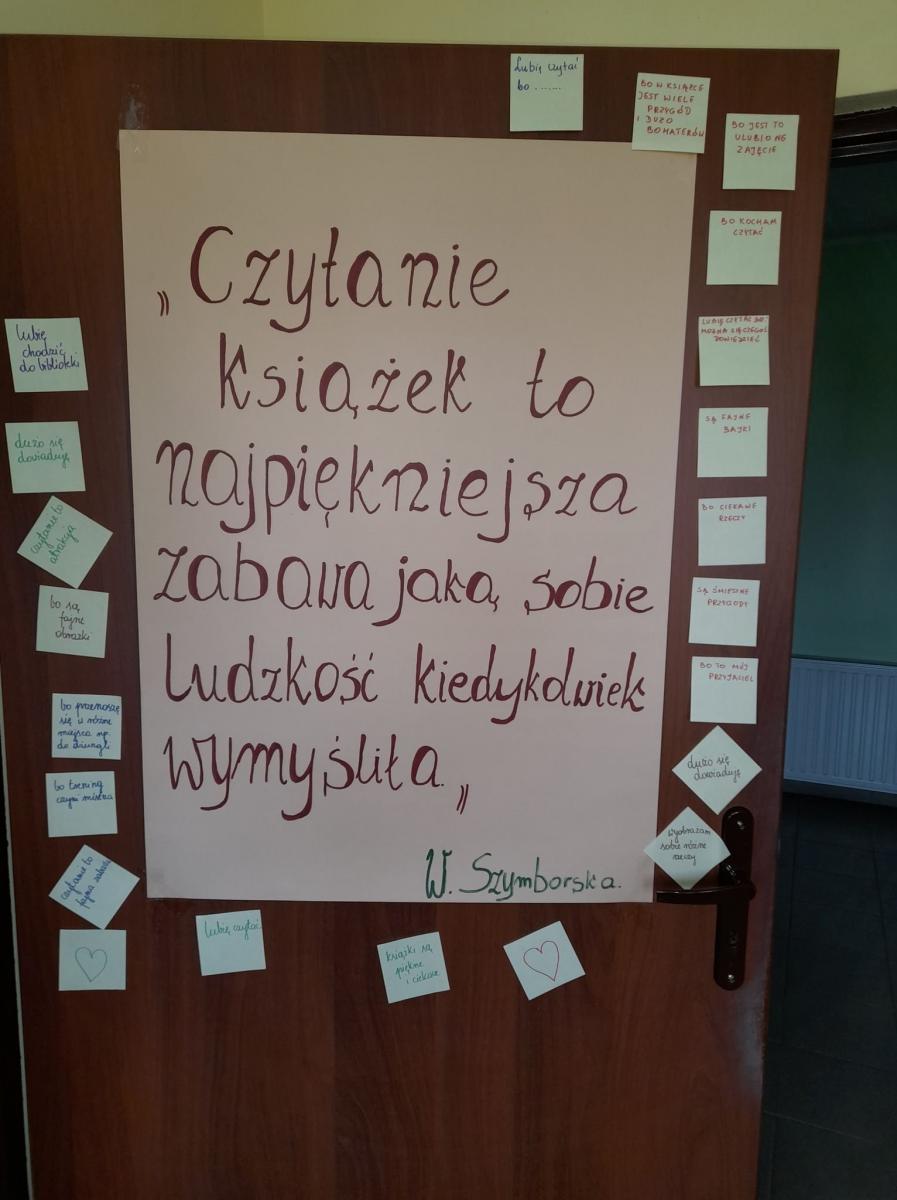 „Czytanie
książek to
najpiękniejsza
zabawa jaką sobie
ludzkość kiedykolwiek
wymyśliła.”
W. Szymborska.
Lubię czytać
bo .......
BO W KSIĄŻCE
JEST WIELE
PRZYGÓD
I DUŻO
BOHATERÓW
BO JEST TO
ULUBIONE
ZAJĘCIE
BO KOCHAM
CZYTAĆ
LUBIĘ CZYTAĆ BO:
MOŻNA SIĘ CZEGOŚ
DOWIEDZIEĆ
SĄ FAJNE
BAJKI
BO CIEKAWE
RZECZY
SĄ ŚMIESZNE
PRZYGODY
BO TO MÓJ
PRZYJACIEL
dużo się
dowiaduję
wyobrażam
sobie różne
rzeczy
lubię
chodzić
do biblioteki
dużo się
dowiaduję
czytanie to
atrakcja
bo są
fajne
obrazki
bo przenoszę
się w różne
miejsca np.
do dżungli
bo trening
czyni mistrza
czytanie to
fajna zabawa
lubię czytać
książki są
piękne
i ciekawe